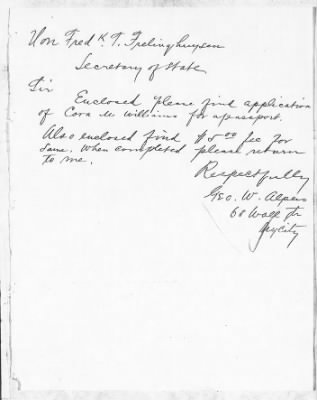 Hon Fred k. T. Frelinghuysen
Secretary of State
Sir
Enclosed please find application
of Cora M. Williams for a passport.
Also enclosed find $5.00 fee for
same. When completed please return
to me.
Respectfully
Geo. W. Alpers
68 Wall St
NyCity